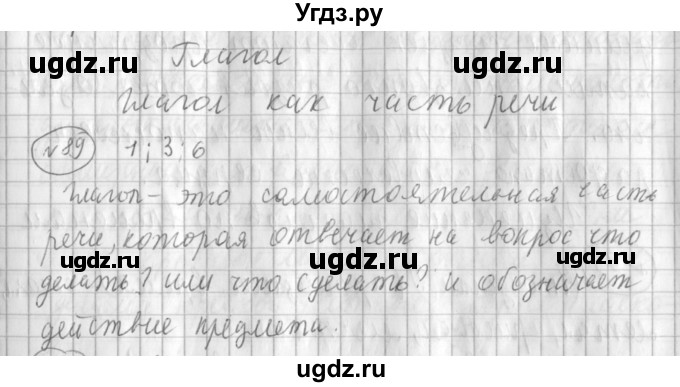 Угдз.ру
Глагол
Глагол как часть речи
№89 1; 3; 6
Глагол - это самостоятельная часть
речи, которая отвечает на вопрос что
делать? или что сделать? и обозначает
действие предмета.
ugdz.ru ugdz.ru ugdz.ru
ugdz.ru ugdz.ru
ugdz.ru ugdz.ru ugdz.ru
ugdz.ru ugdz.ru
Угдз.ру